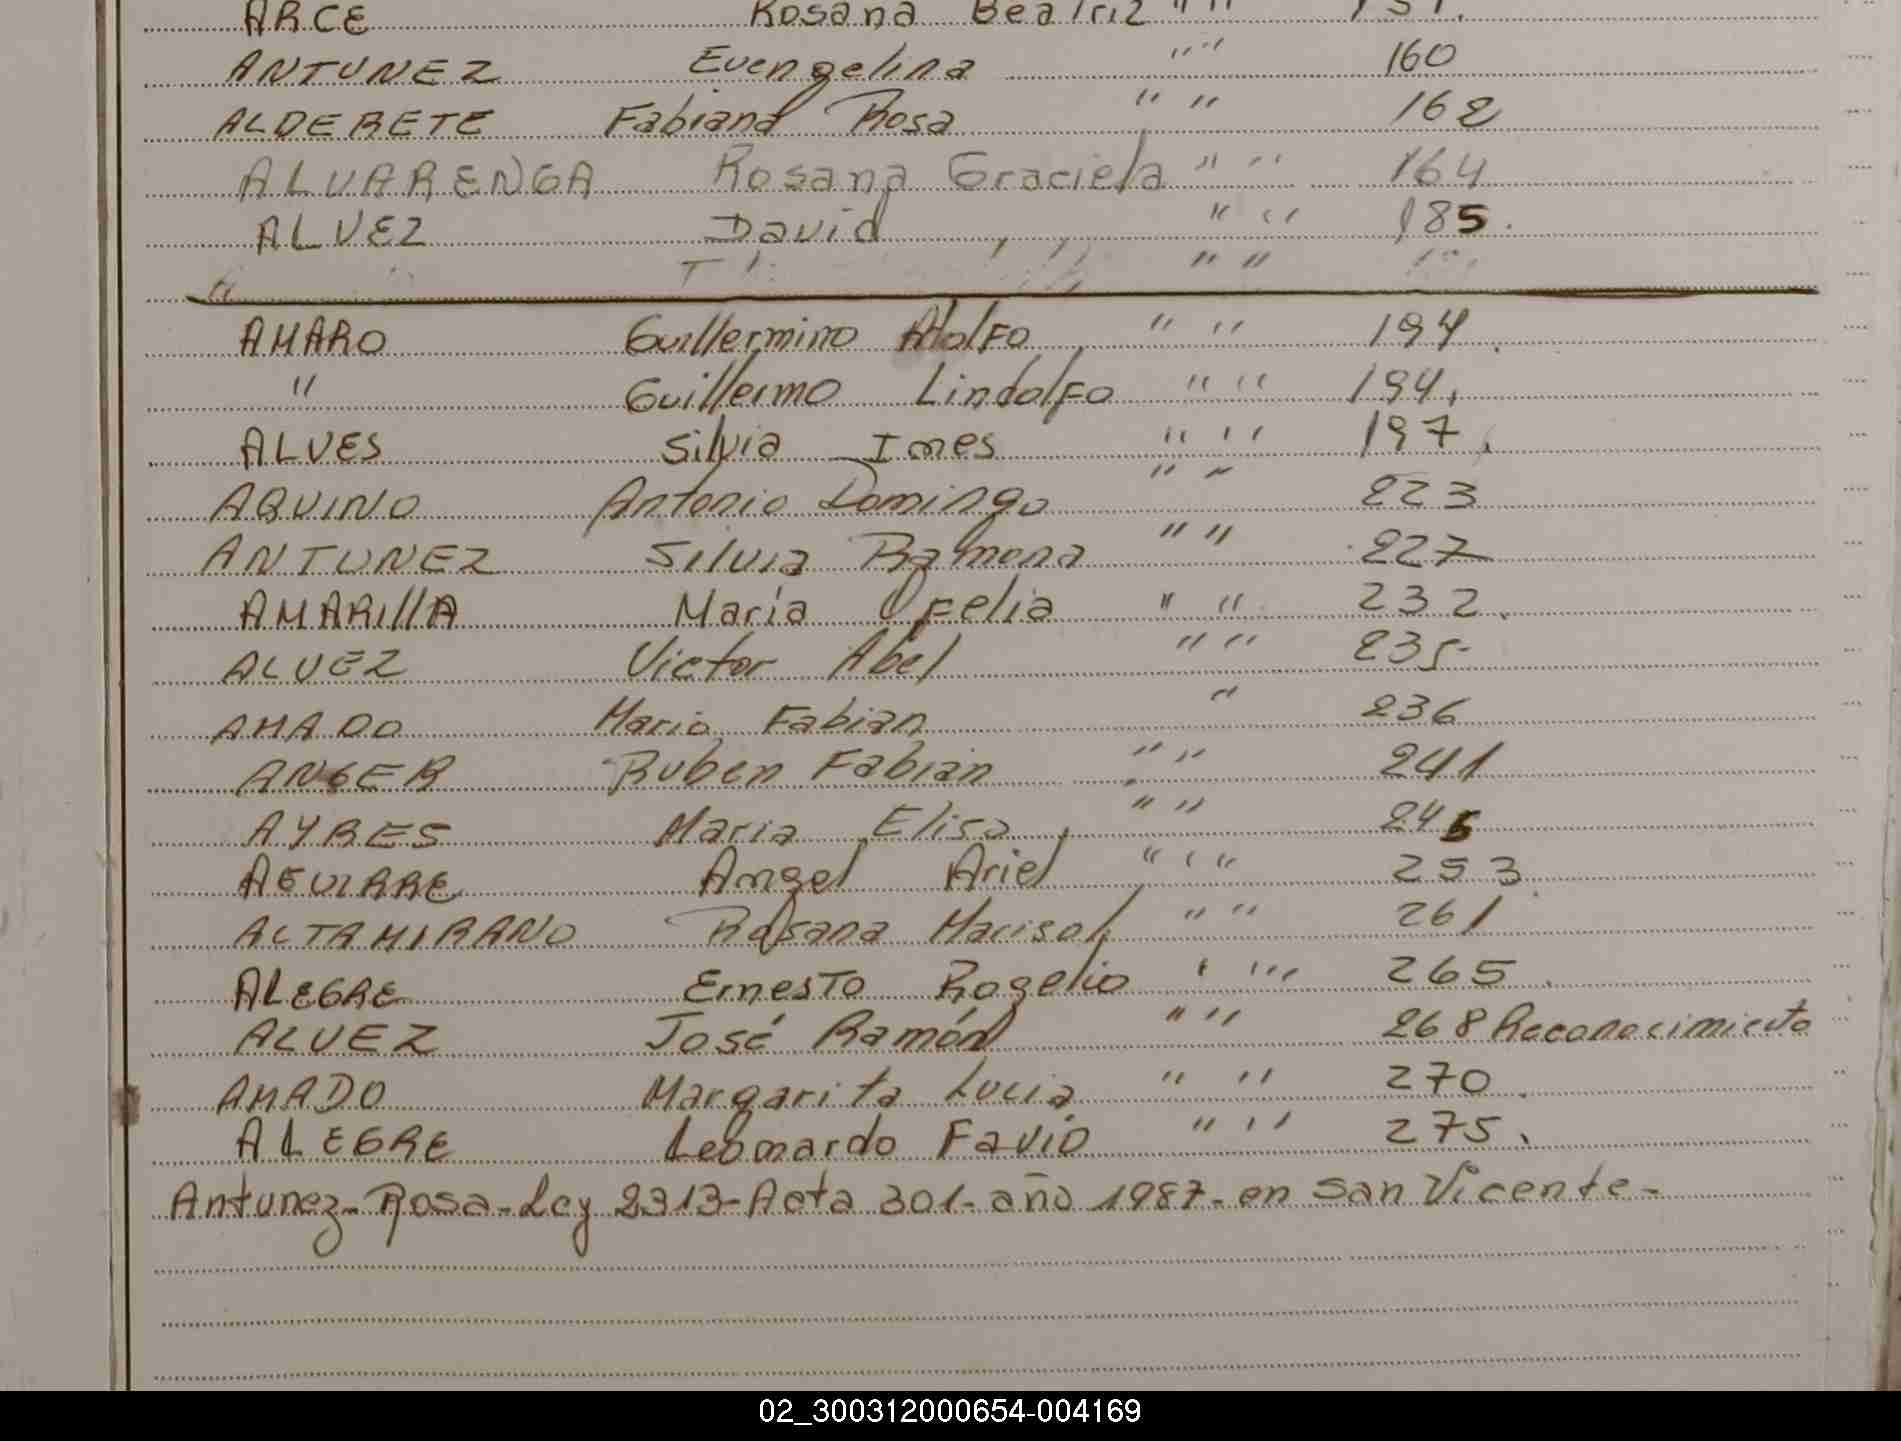 ARCE Rosana Beatriz " " 151.
ANTUNEZ Evengelina " " 160
ALDERETE Fabiana Rosa " " 162
ALVARENGA Rosana Graciela " " 164
ALVEZ David " " 185.
" "
AMARO Guillermino Adolfo " " 194.
" Guillermo Lindolfo " " 194.
ALVES Silvia Ines " " 197.
AQUINO Antonio Domingo " " 223
ANTUNEZ Silvia Ramona " " 227
AMARIllA María Ofelia " " 232.
ALVEZ Victor Abel " " 235-
AMADO Mario Fabian " 236
ANGER Ruben Fabian " " 241
AYRES Maria Elisa " " 245
AGUIRRE Angel Ariel " " 253.
ALTAMIRANO Rosana Marisol " " 261
ALEGRE Ernesto Rogelio " " 265.
ALVEZ José Ramón " " 268 Reconocimiento
AMADO Margarita Lucia " " 270.
ALEGRE Leonardo Favio " " 275.
Antunez-Rosa-Ley 2313-Acta 301-año 1987-en San Vicente-
02_300312000654-004169